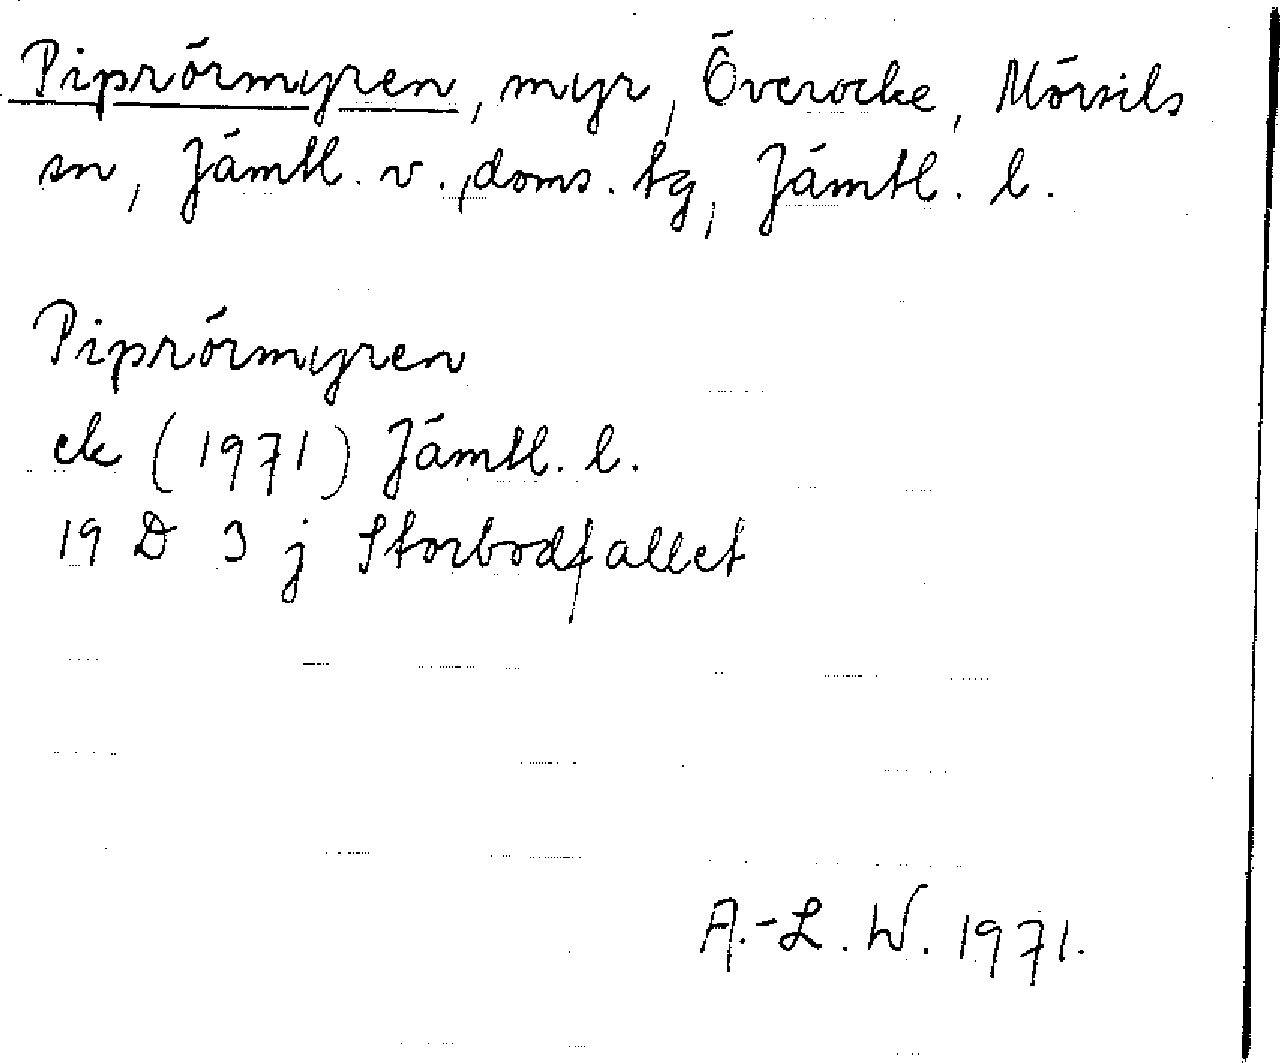 Piprörmyren, myr, Överocke, Mörsils
sn, Jämtl. v., doms. tg, Jämtl. l.
Piprörmyren
ek (1971) Jämtl. l.
19 D 3 j Storbodfallet
A.-L. W. 1971.